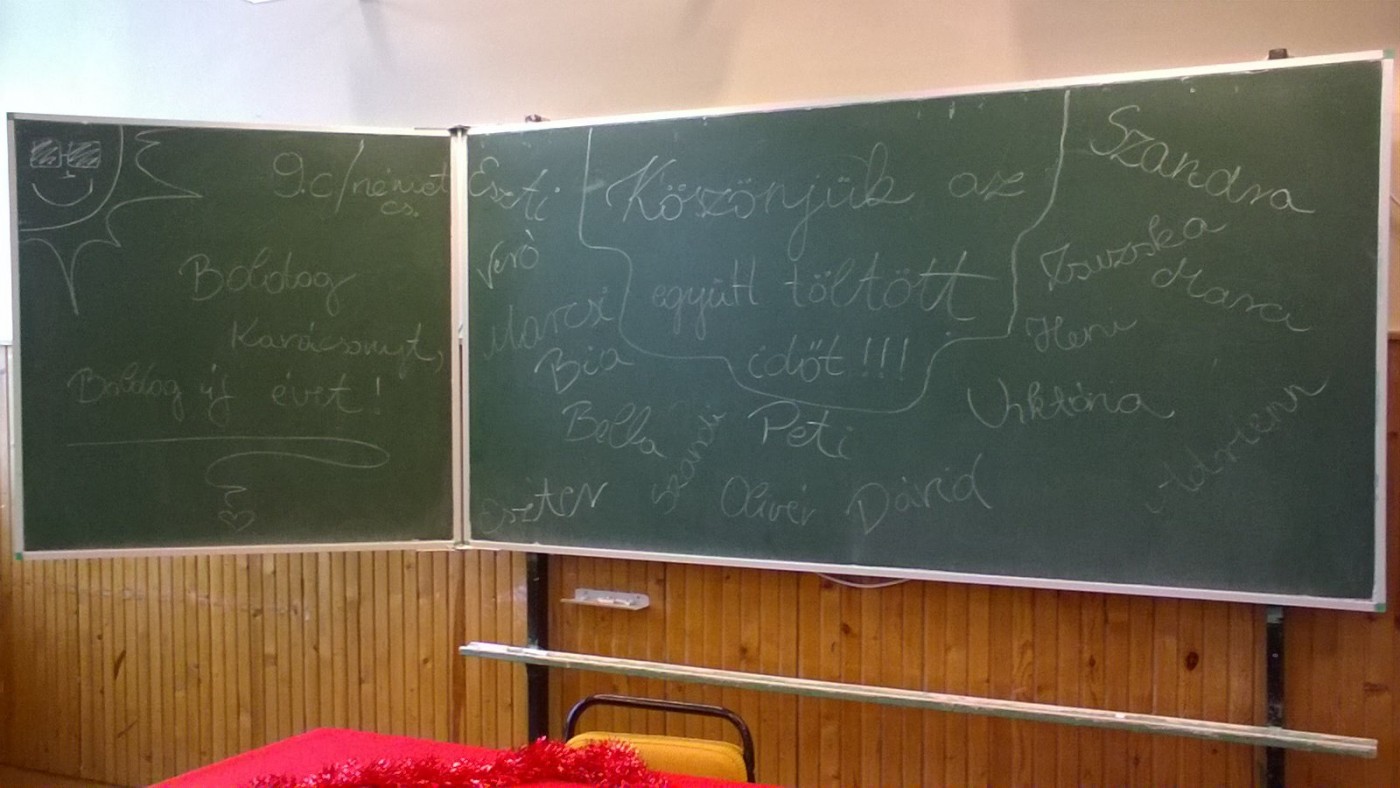 9.c/német
cs.
Boldog
Karácsonyt,
Boldog új évet!
Eszti
Veró
Marcsi
Bia
Bella
Eszter
Köszönjük az
együtt töltött
időt!!!
Peti
Szandi
Olivér
Dávid
Szandra
Zsuzska
Mara
Heni
Viktória
Adrienn